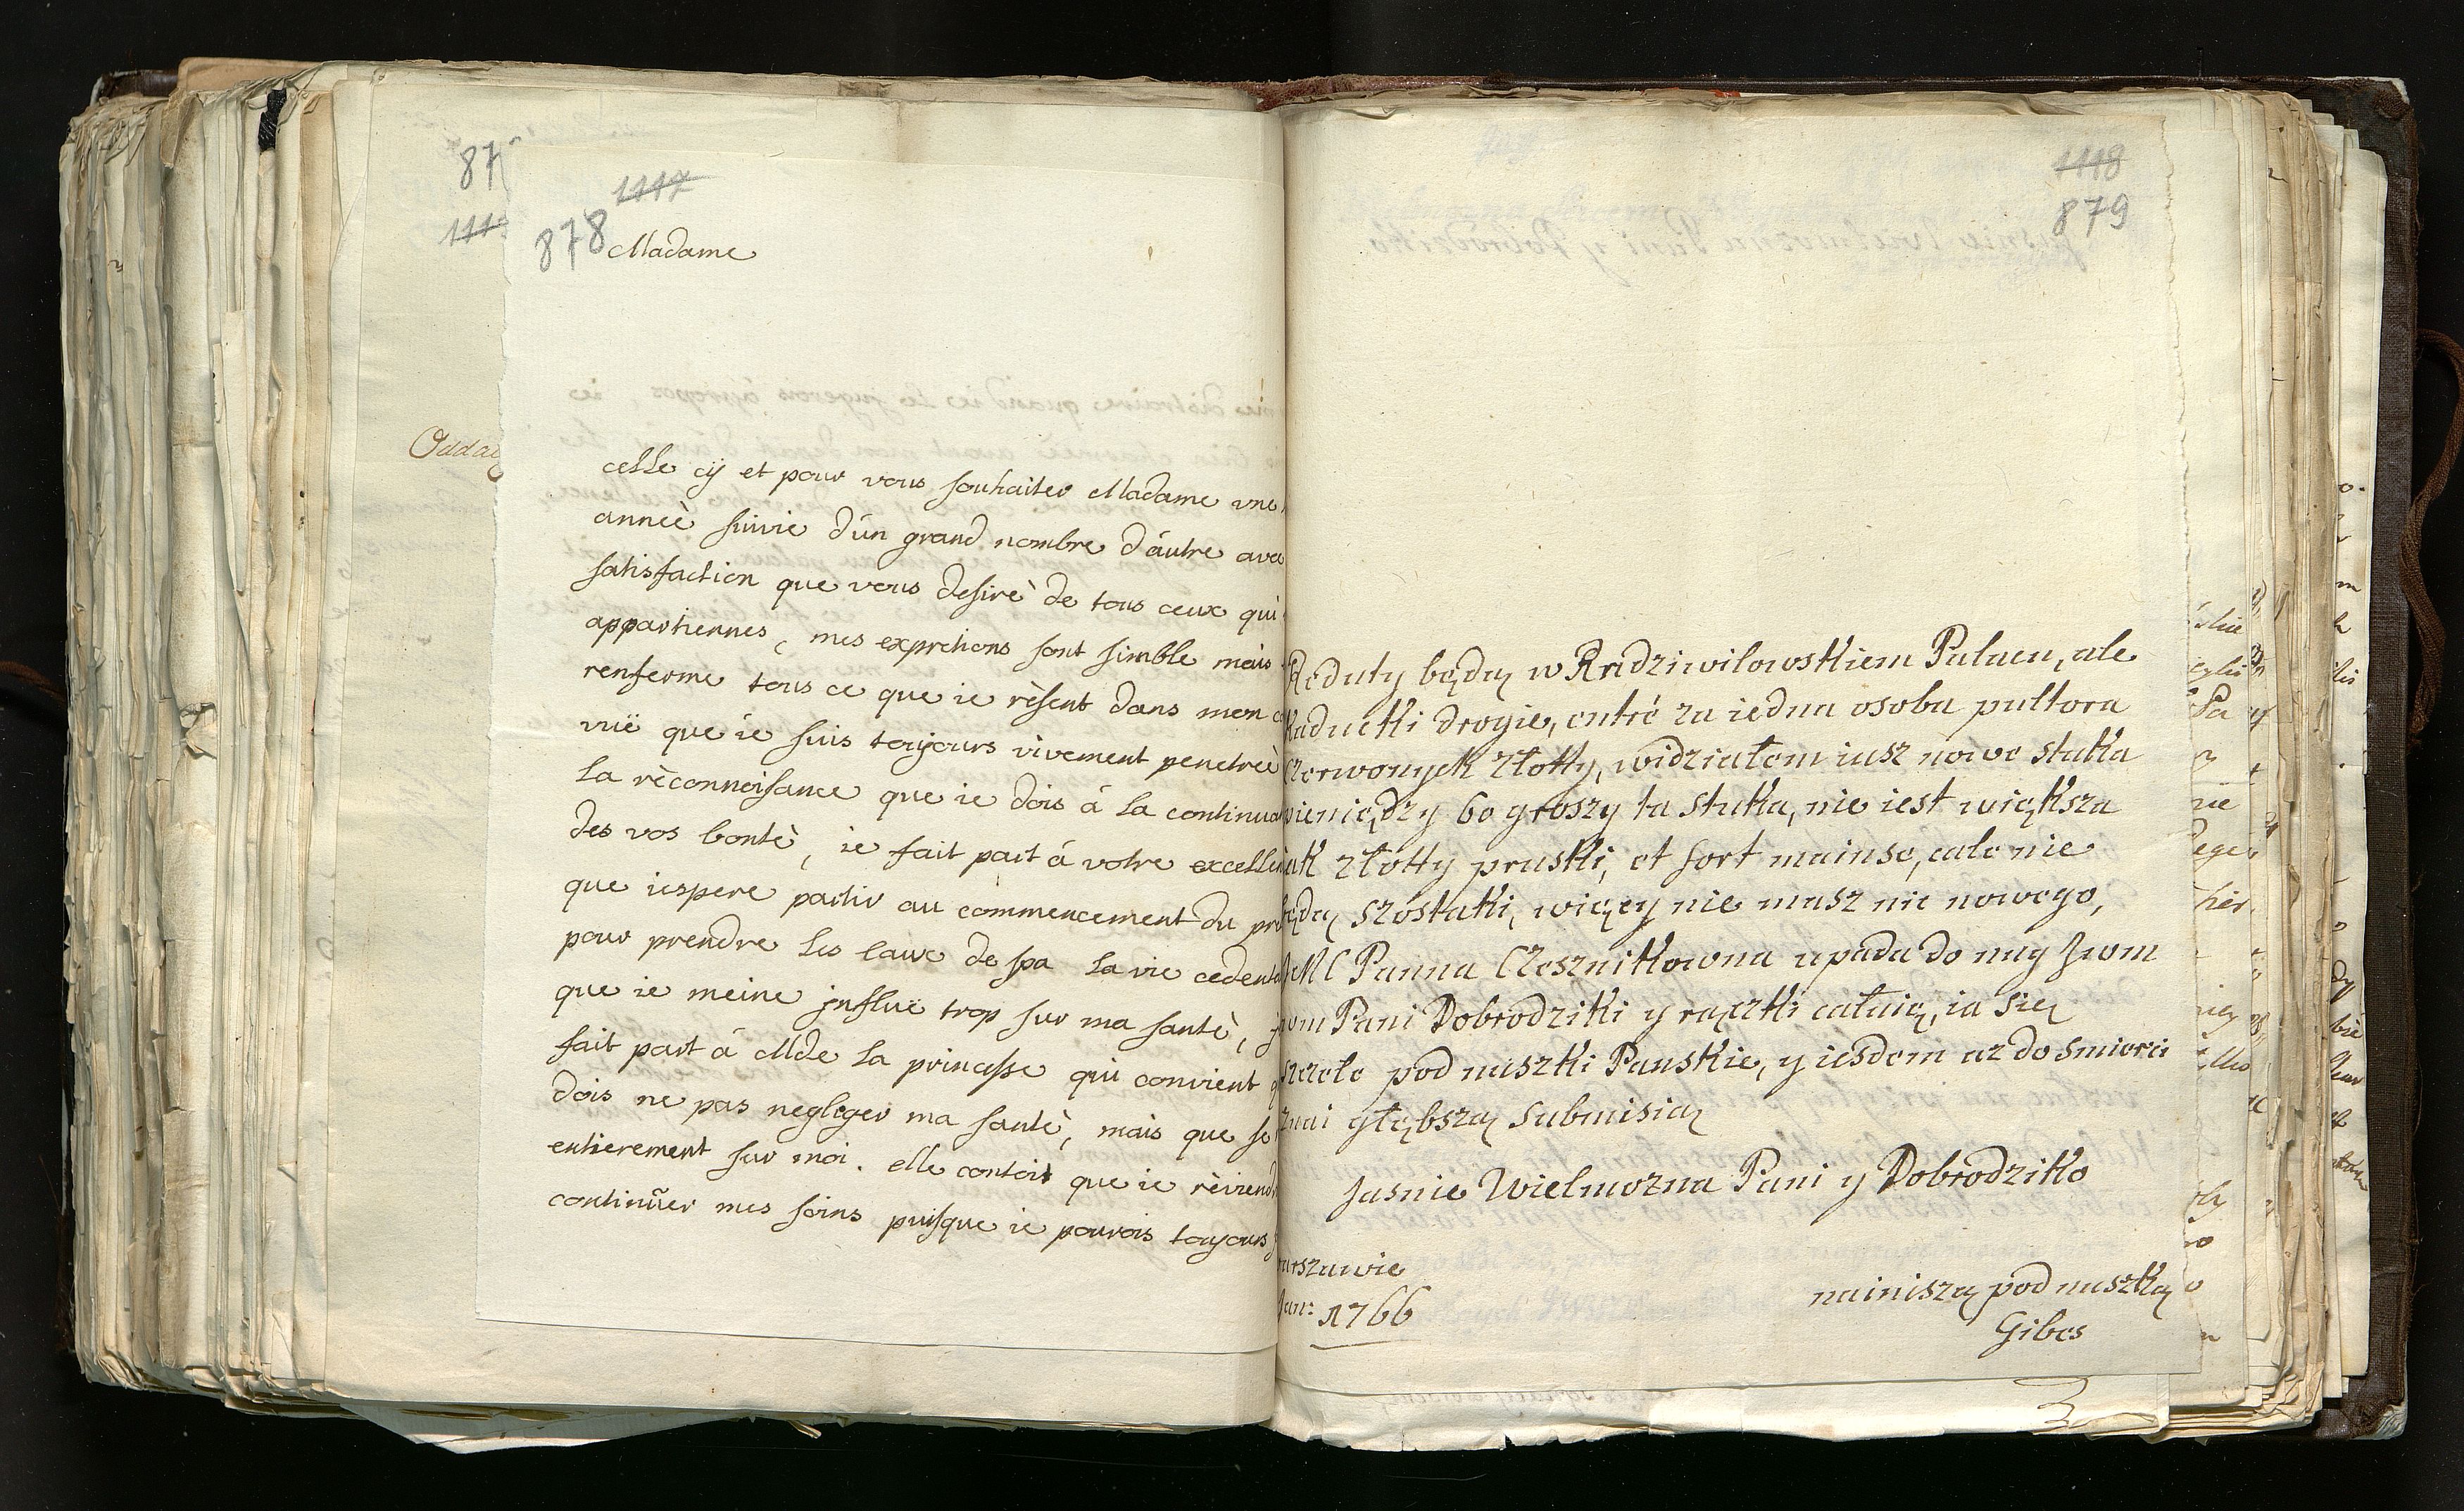 87
111
1117
878
Madame
Odda
celle cÿ et pour vous souhaiter Madame vne
anneè suivie d'ún grand nombre d'áutre avec
satisfaction que vous desirè de tous ceux qui
appartiennes, mes expretions sont simble mais
renferme tous ce que ie rèsent dans mon
vuë que ie suis toujours vivement penetreè
la rèconnoisance que ie dois á la continua
des vos bontè, ie fait part á votre excellen
que iespere partir au commencement du pr
pour prendre les eaux de spa la vie cedent
que ie meine jnfluë trop sur ma santè, j
fait part á Mde la princesse qui convient
dois ne pas negleger ma santè, mais que se
entierement sur moi. elle contoit que ie rèviend
continüer mes soins puisque ie pourois toujours
1118
879
Reduty będą w Radziwilowskiem Palacu, ale
Kaducki drogie, entré za iedna osoba pultora
Czerwonych Złotty, widziałem iusz nowe stuka
pieniędzy 60 groszy ta stuka, nie iest większa
iak złotty pruski, et fort mainse, cale nie
będą szostaki, więcy nie masz nic nowego,
JeMC Panna Czesznikowna upada do nug Jwom
wom Pani Dobrodziki y rączki całuię, ia się
szczele pod nuszki Panskie, y iesdem az do smierci
znai głębszą submisią
Jasnie Wielmozna Pani y Dobrodziko
arszawie
Jan: 1766
nainiszą pod nuszką
Gibes